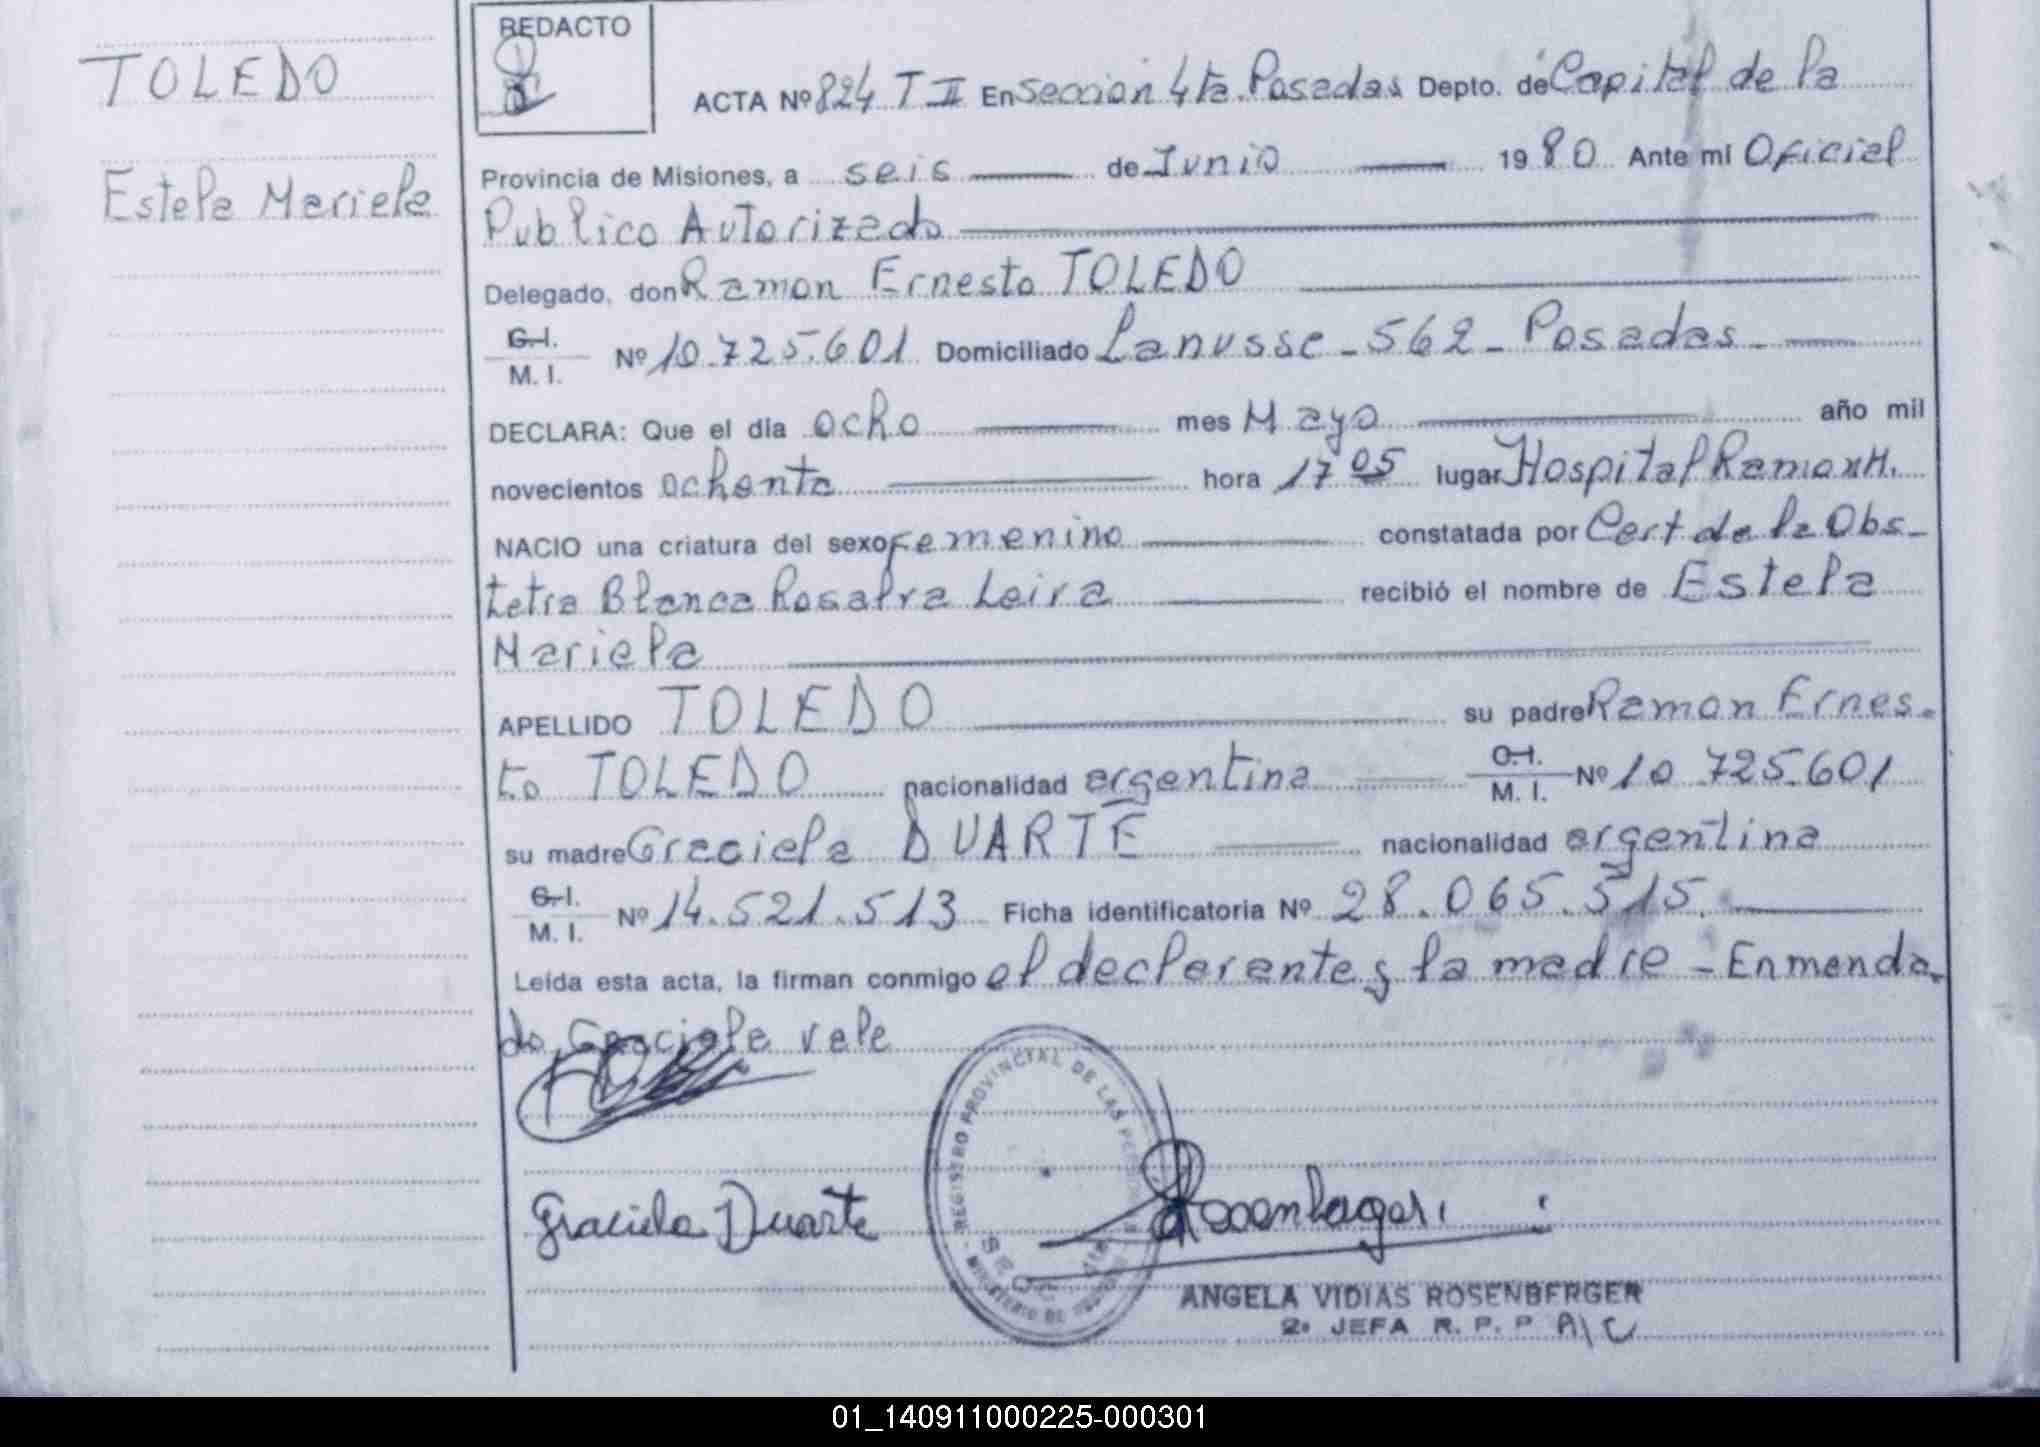 TOLEDO
Estela Mariela
REDACTO
ACTA Nº 824 T II En Sección 4ta. Posadas Depto. de Capital de la
Provincia de Misiones, a seis de Junio 1980 Ante mi Oficial
Publico Autorizado
Delegado, don Ramon Ernesto TOLEDO
C.I. M. I. Nº 10.725.601 Domiciliado Lanusse - 562 - Posadas -
DECLARA: Que el dia ocho mes Mayo año mil
novecientos ochenta hora 17 05 lugar Hospital Ramon M.
NACIO una criatura del sexo femenino constatada por Cert de la Obs-
tetra Blanca Rosalva Leiva recibió el nombre de Estela
Mariela
APELLIDO TOLEDO su padre Ramon Ernes-
to TOLEDO nacionalidad argentina C.I. M. I. Nº 10.725.601
su madre Graciela DUARTE nacionalidad argentina
C.I. M. I. Nº 14.521.513 Ficha identificatoria Nº 28.065.515.
Leida esta acta, la firman conmigo el declarante y la madre - Enmenda-
do Graciela vale
REGISTRO PROVINCIAL DE LAS PERSONAS
Graciela Duarte
ANGELA VIDIAS ROSENBERGER
2ª JEFA R. P. P A/C
01_140911000225-000301